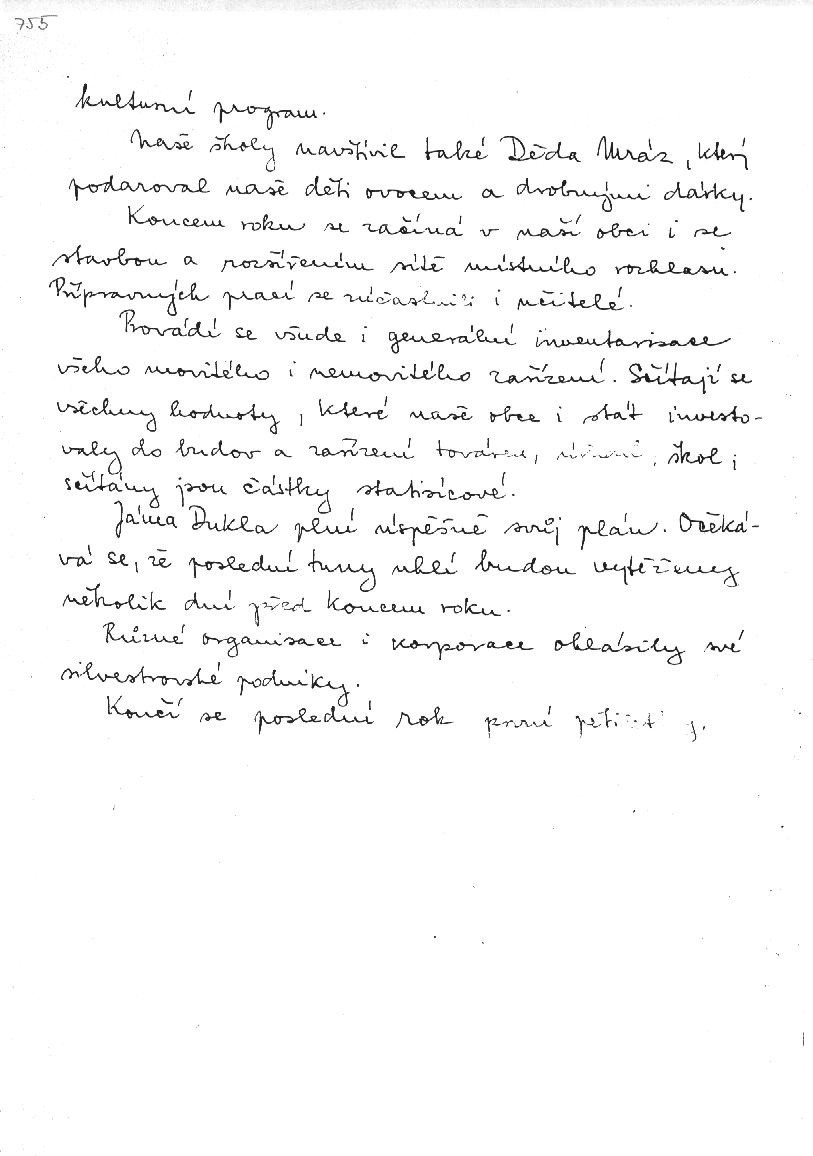 755
kulturní program.
Naše školy navštívil také Děda Mráz, který
podaroval naše děti ovocem a drobnými dárky.
Koncem roku se začíná v naší obci i se
stavbou a rozšířením sítě místního rozhlasu.
Přípravných prací se zúčastnili i učitelé.
Provádí se všude i generální inventarisace
všeho movitého i nemovitého zařízení. Sčítají se
všechny hodnoty, které naše obce i stát investo-
valy do budov a zařízení továren, škol i
sčítány jsou částky statisícové.
Jáma Dukla plní úspěšně svůj plán. Očeká-
vá se, že poslední tuny uhlí budou vytěženy
několik dní před koncem roku.
Různé organisace i korporace ohlásily své
silvestrovské podniky.
Končí se poslední rok první